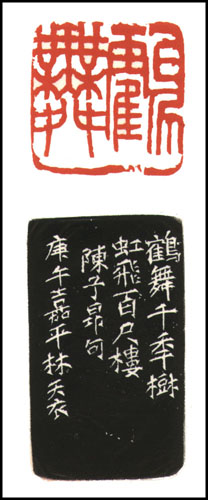 鶴舞
鶴舞千秊樹
虹飛百尺樓
陳子昂句
庚午嘉平林天衣